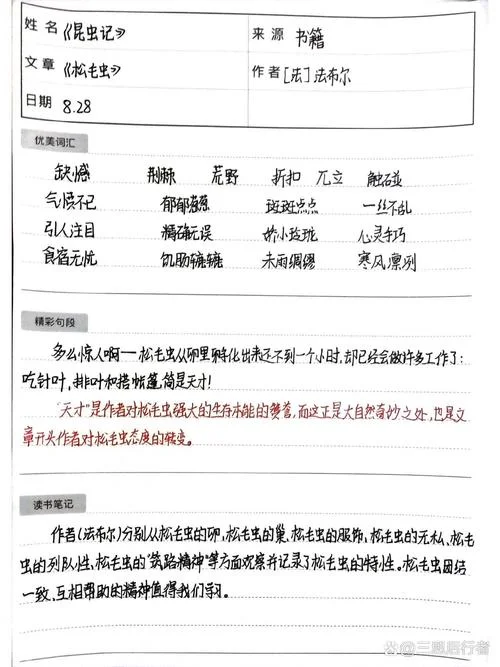 姓名 《昆虫记》 来源 书籍
文章 《松毛虫》 作者 [法]法布尔
日期 8.28
优美词汇
缺憾 荆棘 荒野 折扣 兀立 触碰
气愤不已 郁郁葱葱 斑斑点点 一丝不乱
引人注目 精确无误 娇小玲珑 心灵手巧
食宿无忧 饥肠辘辘 未雨绸缪 寒风凛冽
精彩句段
多么惊人啊——松毛虫从卵里孵化出来还不到一个小时,却已经会做许多工作了:
吃针叶,排叶和搭帐篷,简是天才!
“天才”是作者对松毛虫强大的生存本能的赞誉,而这正是大自然奇妙之处,也是文
章开头作者对松毛虫态度的转变。
读书笔记
作者(法布尔)分别从松毛虫的卵,松毛虫的巢、松毛虫的服饰,松毛虫的无私、松毛
虫的列队性、松毛虫的“筑路精神”等方面观察并记录了松毛虫的特性。松毛虫团结
一致、互相帮助的精神值得我们学习。
@三愿后行者